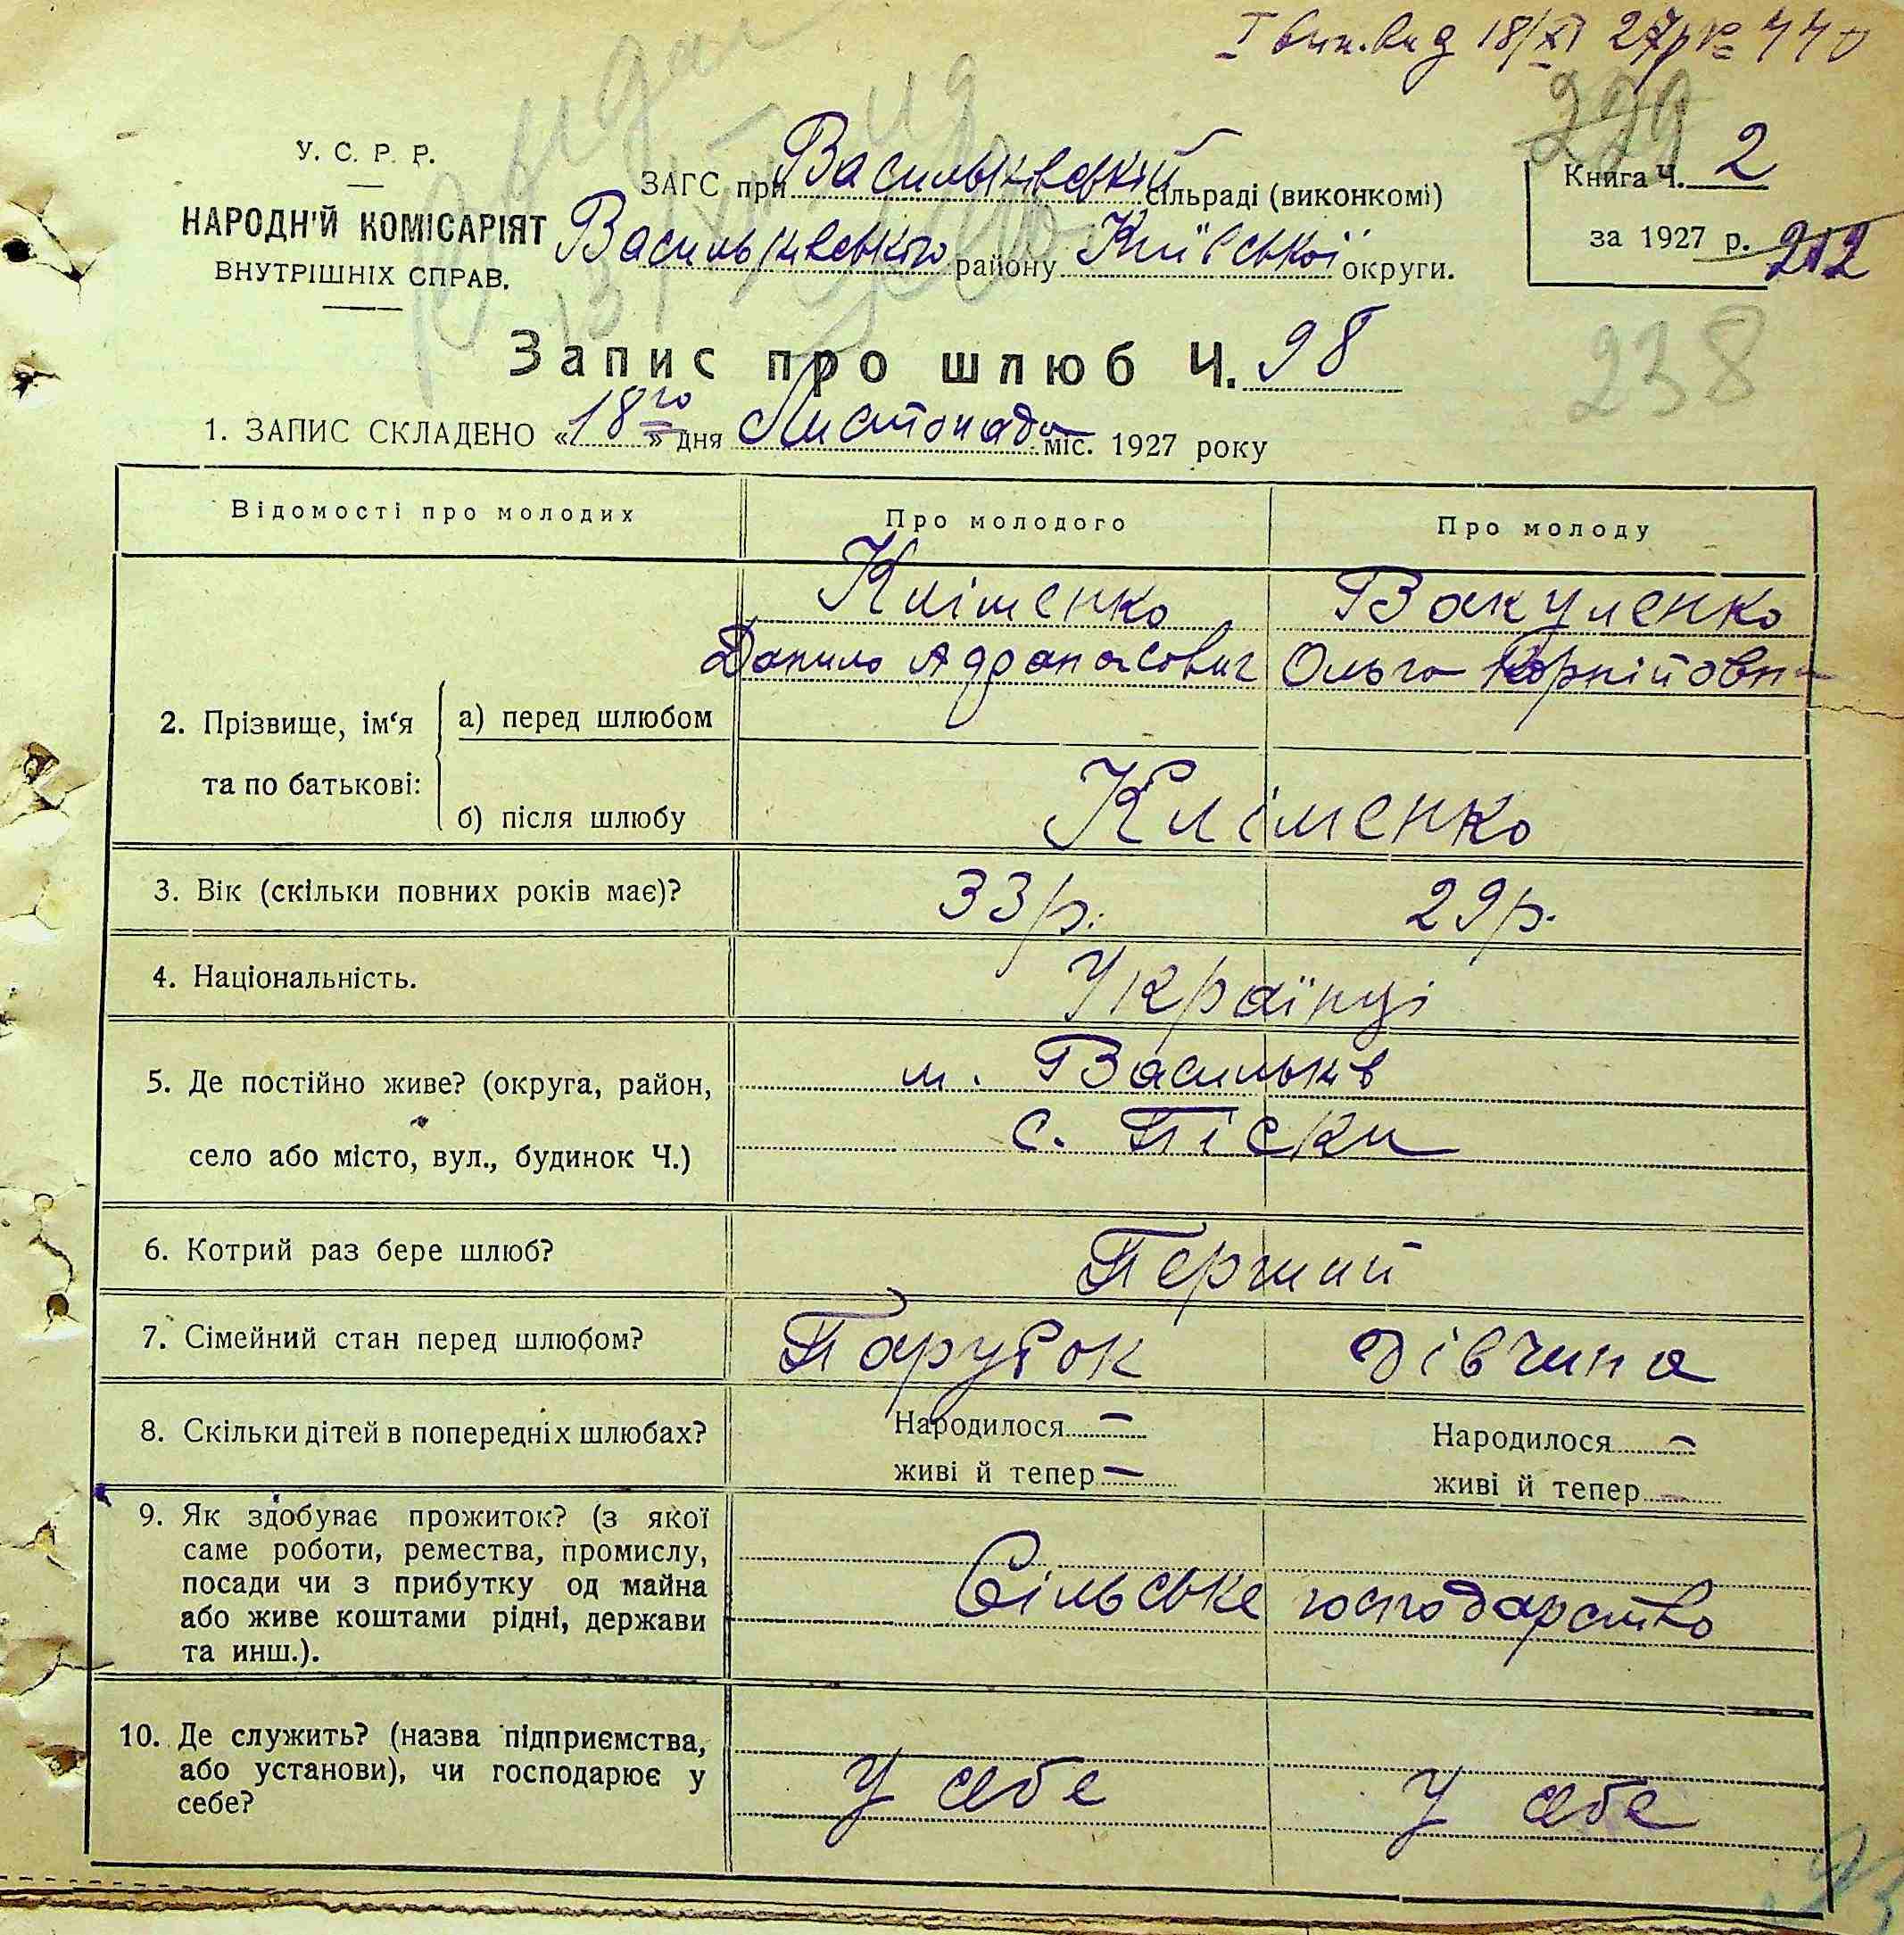 І вип. вид 18/XI 27р № 440
229
У. С. Р. Р.
НАРОДН'Й КОМІСАРІЯТ
ВНУТРІШНІХ СПРАВ.
ЗАГС при Васильківській сільраді (виконкомі)
Васильківського району Київської округи.
Книга Ч. 2
за 1927 р.
212
238
Запис про шлюб Ч. 98
1. ЗАПИС СКЛАДЕНО «18го» дня Листопада міс. 1927 року
Відомості про молодих Про молодого Про молоду
Кліменко Вакуленко
Данило Афанасович Ольга Корнійовна
2. Прізвище, ім'я та по батькові:
а) перед шлюбом
б) після шлюбу Кліменко
3. Вік (скільки повних років має)? 33р. 29р.
4. Національність. Українці
5. Де постійно живе? (округа, район, м. Васильків
село або місто, вул., будинок Ч.) с. Піски
6. Котрий раз бере шлюб? Перший
7. Сімейний стан перед шлюбом? Парубок дівчина
8. Скільки дітей в попередніх шлюбах? Народилося — Народилося —
живі й тепер — живі й тепер
9. Як здобуває прожиток? (з якої
саме роботи, ремества, промислу,
посади чи з прибутку од майна
або живе коштами рідні, держави
та инш.).
Сільське господарство
10. Де служить? (назва підприємства,
або установи), чи господарює у
себе?
У себе У себе